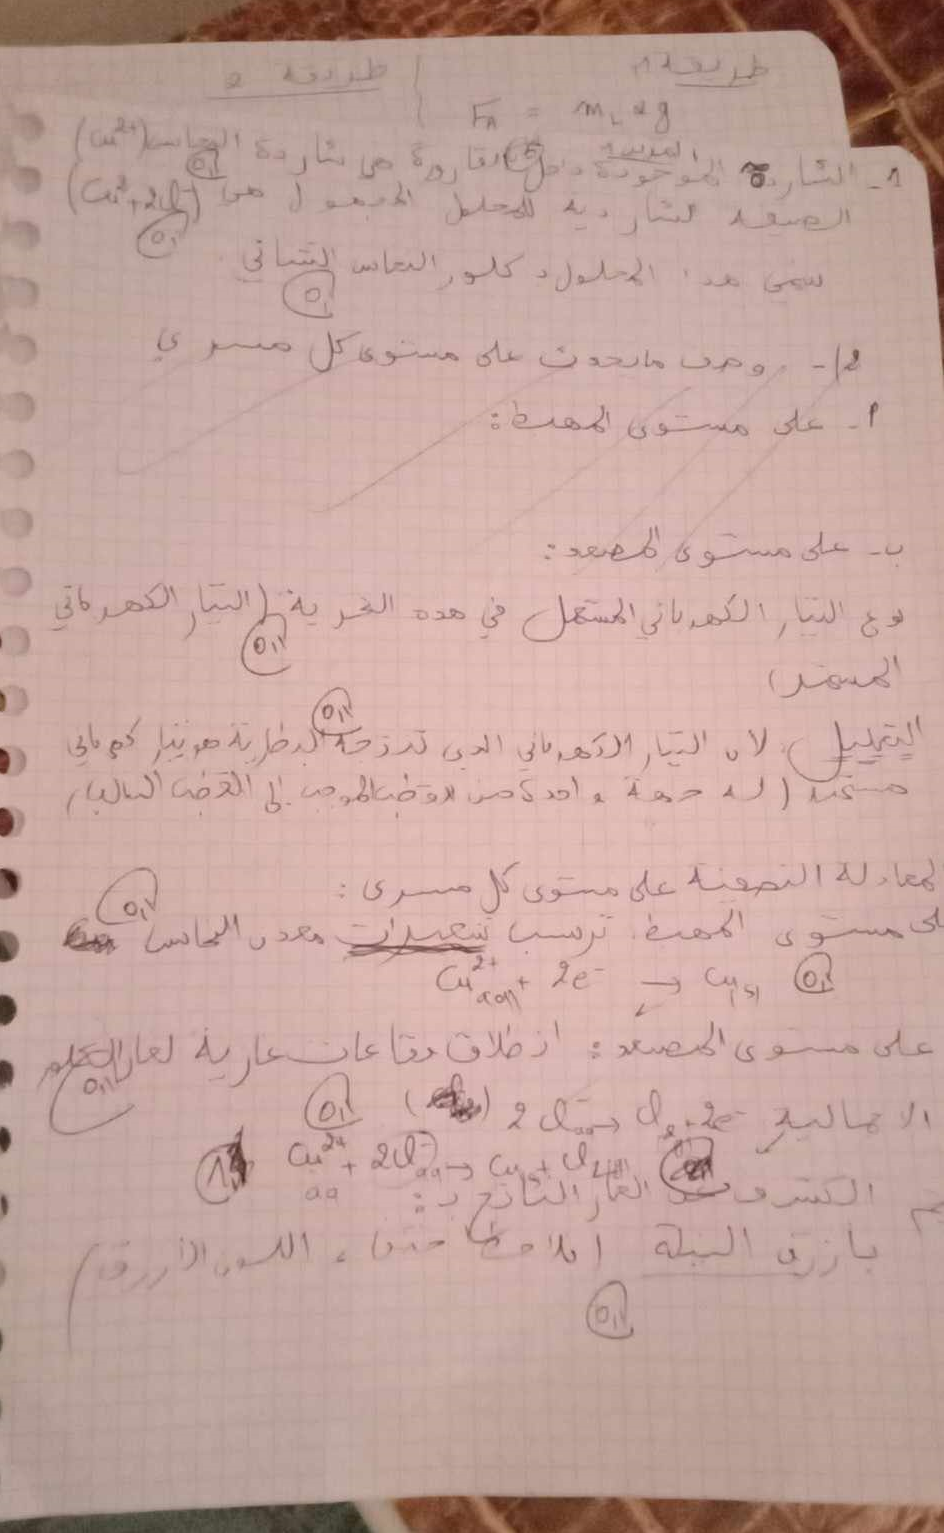 طريقة 1 | طريقة 2
FA = mL × g
1- الشاردة الموجبة الموجودة داخل القارورة هي شاردة النحاس (Cu²⁺) 0,1
الصيغة الشاردية للمحلول المجهول هي (Cu²⁺+2Cl⁻) 0,1
يسمى هذا المحلول: كلور النحاس الثنائي 0,1
2/- وصف ما يحدث على مستوى كل مسرى
أ- على مستوى المهبط:
ب- على مستوى المصعد:
نوع التيار الكهربائي المستعمل في هذه التجربة (التيار الكهربائي 0,1
المستمر)
التعليل: لأن التيار الكهربائي الذي تنتجه البطارية هو تيار كهربائي 0,1
مستمر (له جهة واحدة من القطب الموجب إلى القطب السالب)
المعادلة النصفية على مستوى كل مسرى:
على مستوى المهبط: ترسب معدن النحاس 0,1
Cu²⁺(aq) + 2e⁻ → Cu(s) 0,1
على مستوى المصعد: انطلاق فقاعات غازية لغاز الكلور 0,1
2Cl⁻(aq) → Cl₂ + 2e⁻ 0,1
الاجمالية: Cu²⁺(aq) + 2Cl⁻(aq) → Cu(s) + Cl₂(g)
الكشف الغاز الناتج بـ:
بأزرق النيلة اللون الأزرق)
0,1